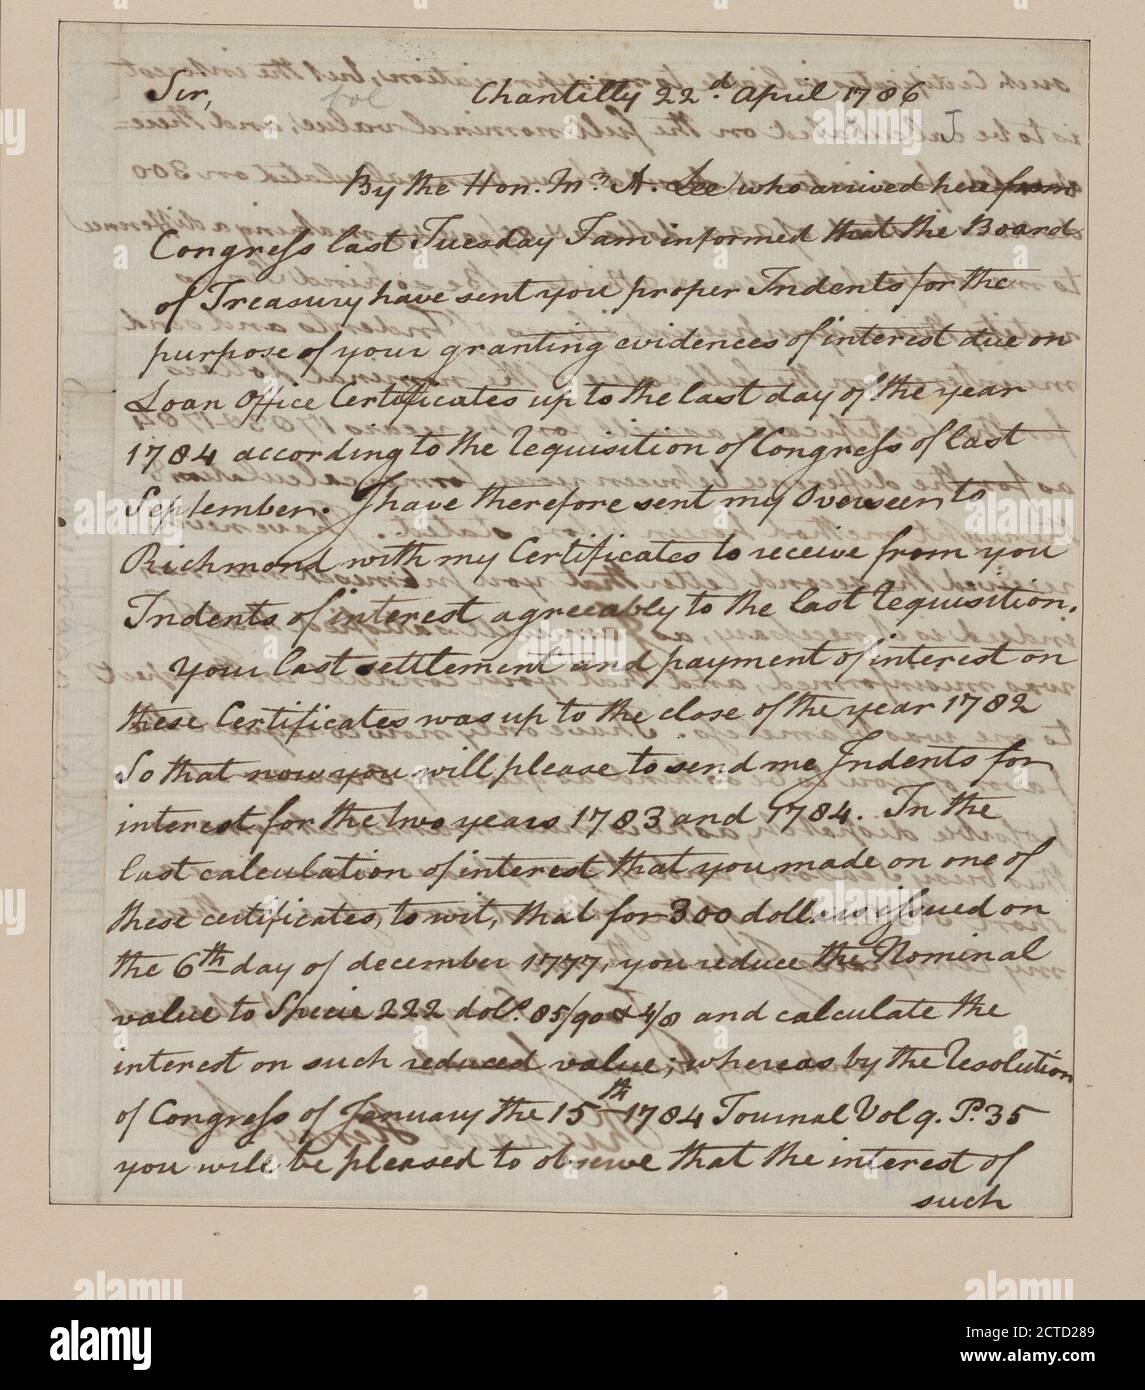 Sir, Chantilly 22.d April 1786
By the Hon. Mr. A. Lee who arrived here from
Congress last Tuesday I am informed that the Board
of Treasury have sent you proper Indents for the
purpose of your granting evidences of interest due on
Loan Office Certificates up to the last day of the year
1784 according to the requisition of Congress of last
September. I have therefore sent my Overseer to
Richmond with my Certificates to receive from you
Indents of interest agreeably to the last requisition.
Your last settlement and payment of interest on
these Certificates was up to the close of the year 1782
So that now you will please to send me Indents for
interest for the two years 1783 and 1784. In the
last calculation of interest that you made on one of
these certificates, to wit, that for 300 dollars issued on
the 6th day of december 1777, you reduce the Nominal
value to Specie 222 dol.s 85/90 & 4/8 and calculate the
interest on such reduced value; whereas by the resolution
of Congress of January the 15th 1784 Journal Vol 9. P. 35
you will be pleased to observe that the interest of
such
alamy
Image ID: 2CTD289
www.alamy.com